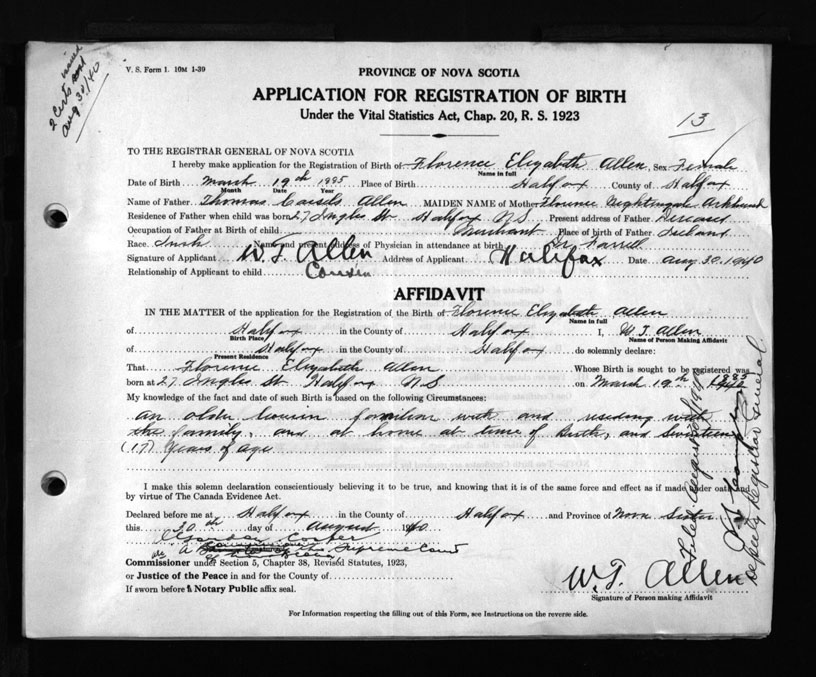 2 Certs issued
Aug 30/40
V. S. Form 1. 10M 1-39
PROVINCE OF NOVA SCOTIA
APPLICATION FOR REGISTRATION OF BIRTH
Under the Vital Statistics Act, Chap. 20, R. S. 1923
13
TO THE REGISTRAR GENERAL OF NOVA SCOTIA
I hereby make application for the Registration of Birth of Florence Elizabeth Allen, Sex Female
Name in full
Date of Birth March 19th 1885 Place of Birth Halifax County of Halifax
Month Date Year
Name of Father Thomas Allen MAIDEN NAME of Mother Florence Nightingale
Residence of Father when child was born 27 Inglis St. Halifax N S Present address of Father Deceased
Occupation of Father at Birth of child Merchant Place of birth of Father Ireland
Race Irish Name and present address of Physician in attendance at birth Dr. Farrell
Signature of Applicant W. T. Allen Address of Applicant Halifax Date Aug 30. 1940
Relationship of Applicant to child Cousin
AFFIDAVIT
IN THE MATTER of the application for the Registration of the Birth of Florence Elizabeth Allen
Name in full
of Halifax in the County of Halifax I, W. T. Allen
Birth Place Name of Person Making Affidavit
of Halifax in the County of Halifax do solemnly declare:
Present Residence
That Florence Elizabeth Allen Whose Birth is sought to be registered was
born at 27 Inglis St. Halifax N S on March 19th 1885
My knowledge of the fact and date of such Birth is based on the following Circumstances:
an older cousin familiar with and residing with
the family, and at home at time of Birth, and Seventeen
(17) Years of age
I make this solemn declaration conscientiously believing it to be true, and knowing that it is of the same force and effect as if made under oath and
by virtue of The Canada Evidence Act.
Declared before me at Halifax in the County of Halifax and Province of Nova Scotia
this 30th day of August 1940
A Commissioner of the Supreme Court
of Nova Scotia
Commissioner under Section 5, Chapter 38, Revised Statutes, 1923,
or Justice of the Peace in and for the County of
If sworn before a Notary Public affix seal.
W. T. Allen
Signature of Person making Affidavit
For Information respecting the filling out of this Form, see Instructions on the reverse side.
Filed August 30 1940
Deputy Registrar General